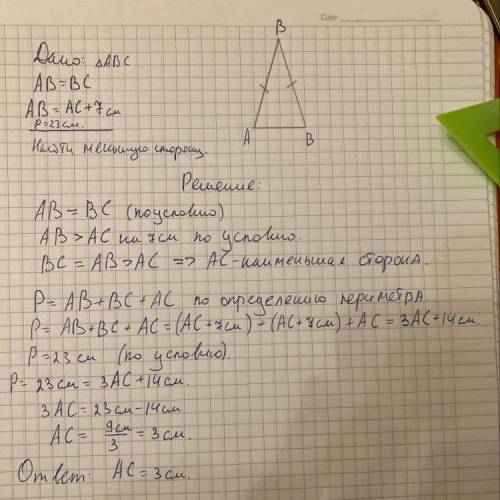 Date
Дано: △ABC
AB=BC
AB=AC+7см
P=23см.
Найти меньшую сторону.
B
A
B
Решение:
AB=BC (по условию)
AB>AC на 7см по условию.
BC=AB>AC => AC-наименьшая сторона.
P=AB+BC+AC по определению периметра
P=AB+BC+AC=(AC+7см)+(AC+7см)+AC=3AC+14см.
P=23см (по условию).
P=23см=3AC+14см.
3AC=23см-14см
AC= 9см/3 =3см.
Ответ: AC=3см.